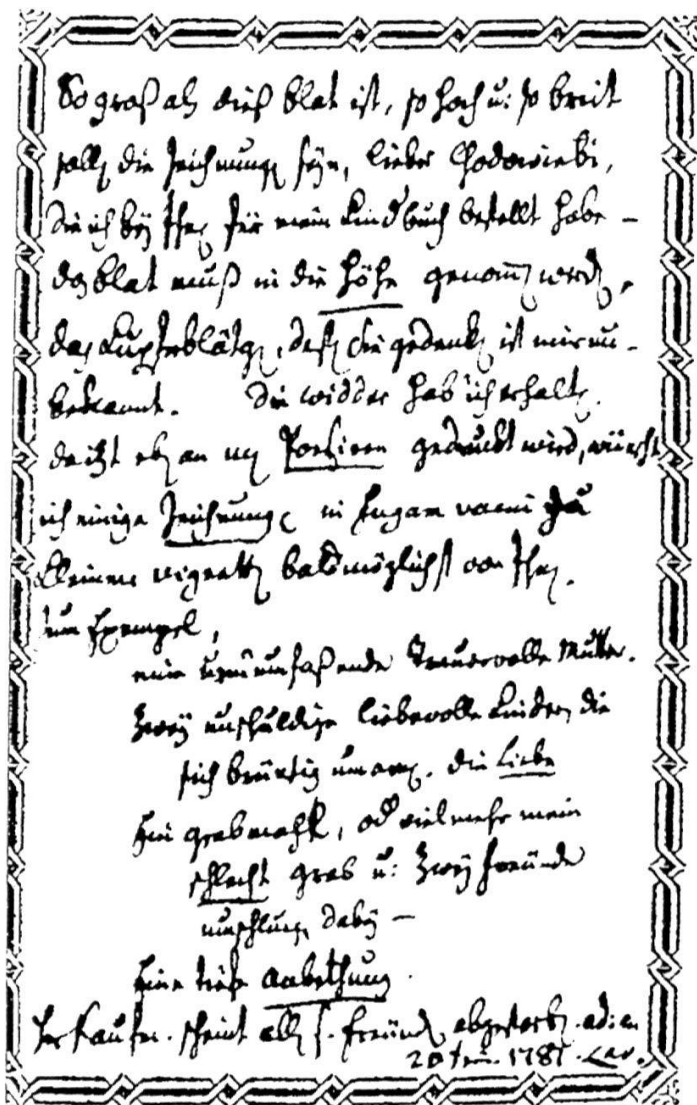 So groß als dieß blat ist, so hoch u: so breit
solln die Zeichnungen seyn, lieber Chodowieki,
die ich bey Ihnen für mein Kindbuch bestellt habe –
das blat muß in die Höhe genommen werden,
das Kupferblätgen, deßen Sie gedenken ist mir un-
bekannt. Die widder hab' ich erhalten.
da itzt eben an meinen Poesieen gedruckt wird, wünscht
ich einige Zeichnungen in
kleinen vignetten baldmöglichst von Ihnen.
Zum Exempel,
eine umfaßende Trauervolle Mutter.
Zwey unschuldige liebevolle Kinder, die
sich brünstig umarmen. die Liebe
Ein grabmahl, oder vielmehr mein
schlecht grab u: Zwey freünde
umschlungen dabey –
Eine tiefe Anbethung.
Hr Kaufm. scheint allen s. freünden abgestorben. ad:
20 1781. Lav.